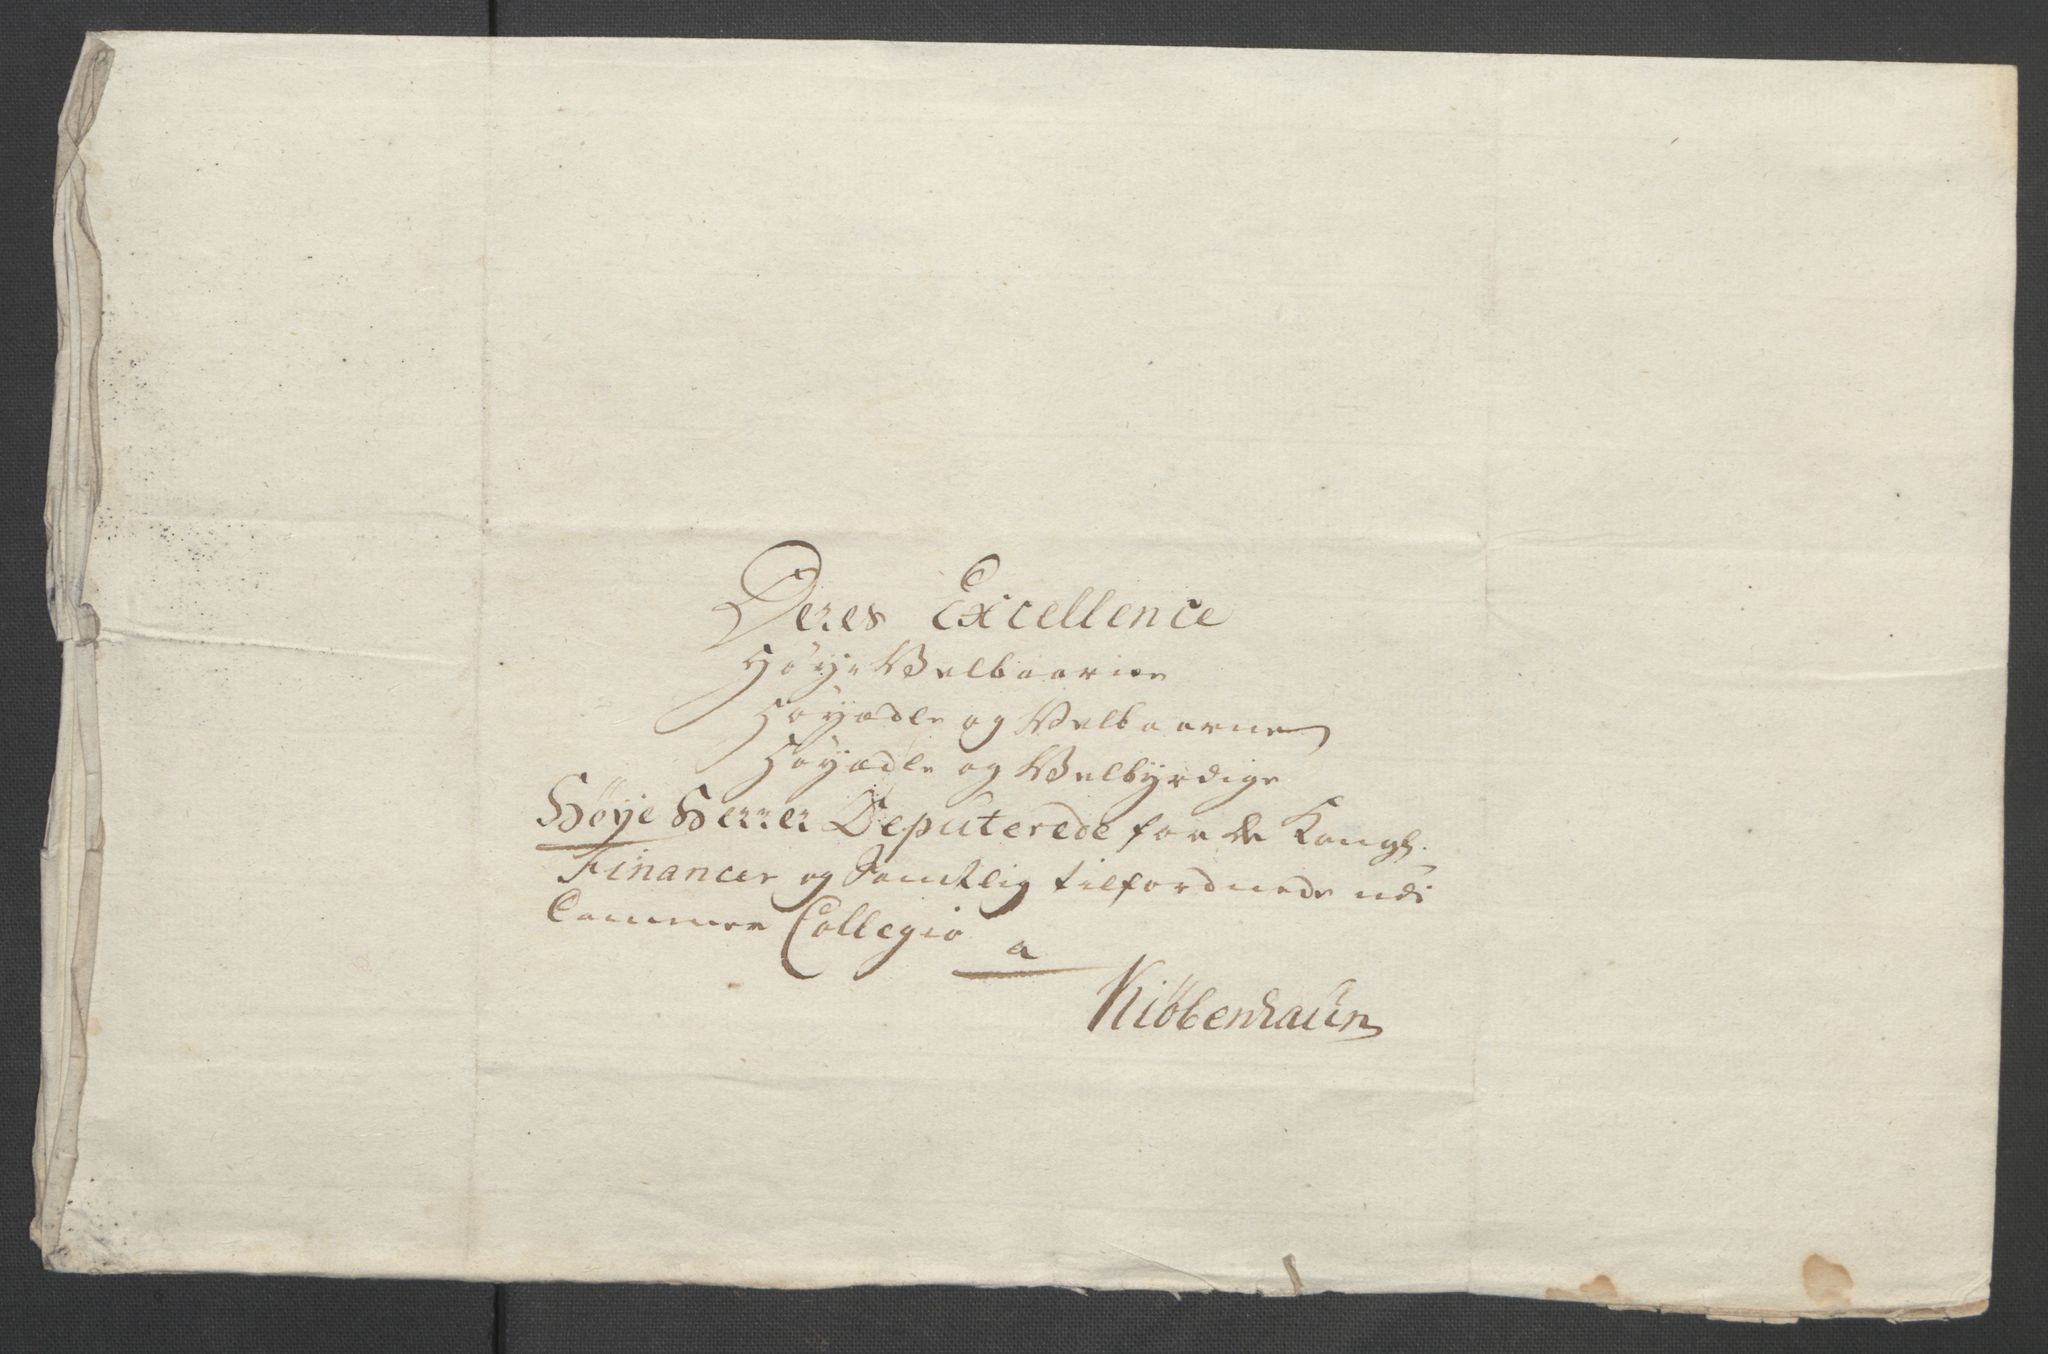 Deres Excellence
Høye Velbaarne
Høyædle og Velbaarne
Høyædle og Velbyrdige
Høye Herrer Deputerede for de Kongl.
Financer og Samtlig tilfordnede udi
Cammer Collegio a
Kiøbenhaun